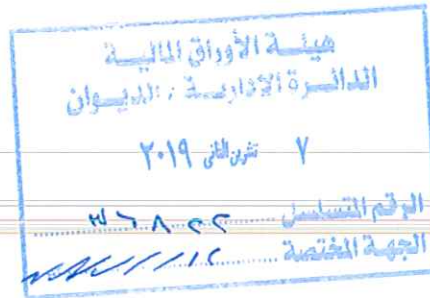 هيئة الأوراق المالية
الدائرة الإدارية / الديوان
٧ تشرين الثاني ٢٠١٩
الرقم المتسلسل
الجهة المختصة